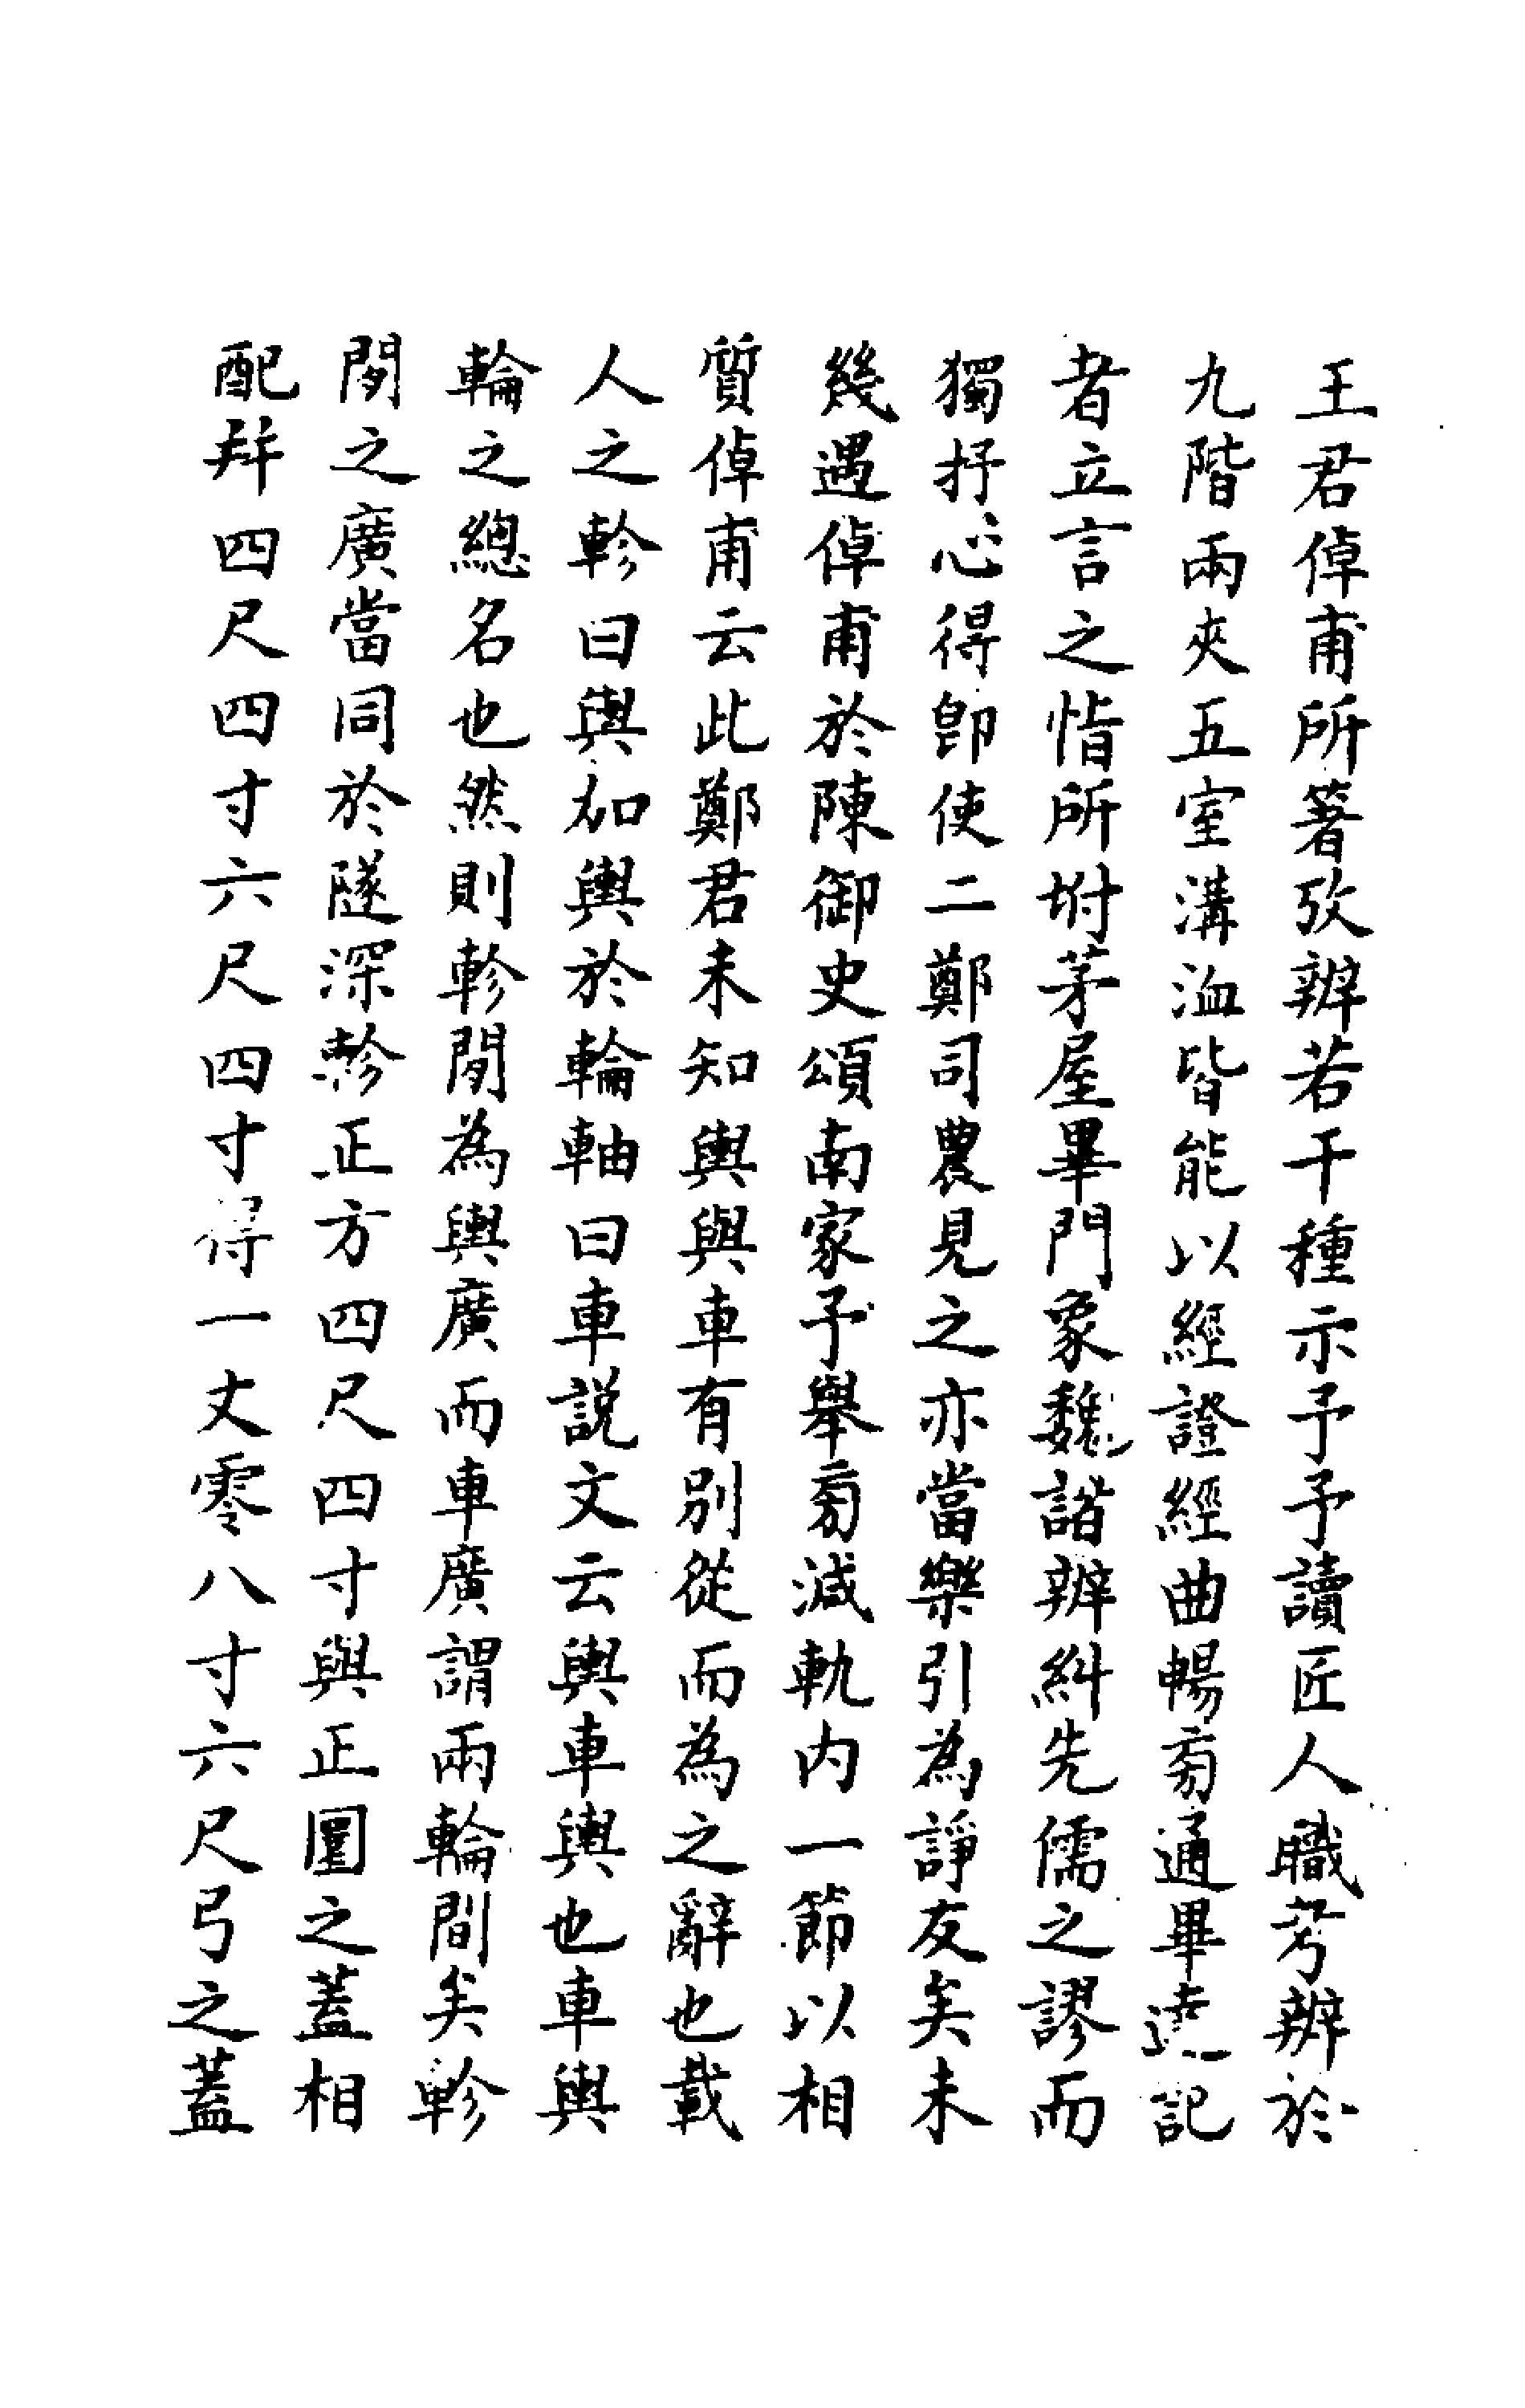 王君倬甫所著攷辨若干種示予予讀匠人職考辨於
九階兩夾五室溝洫皆能以經證經曲暢旁通畢達記
者立言之恉所坿茅屋畢門象魏諸辨糾先儒之謬而
獨抒心得卽使二鄭司農見之亦當樂引為諍友矣未
幾遇倬甫於陳御史頌南家予舉旁減軌內一節以相
質倬甫云此鄭君未知輿與車有別從而為之辭也載
人之軫曰輿加輿於輪軸曰車說文云輿車輿也車輿
輪之總名也然則軫閒為輿廣而車廣謂兩輪間矣軫
閒之廣當同於隧深軫正方四尺四寸與正圍之蓋相
配幷四尺四寸六尺四寸得一丈零八寸六尺弓之蓋